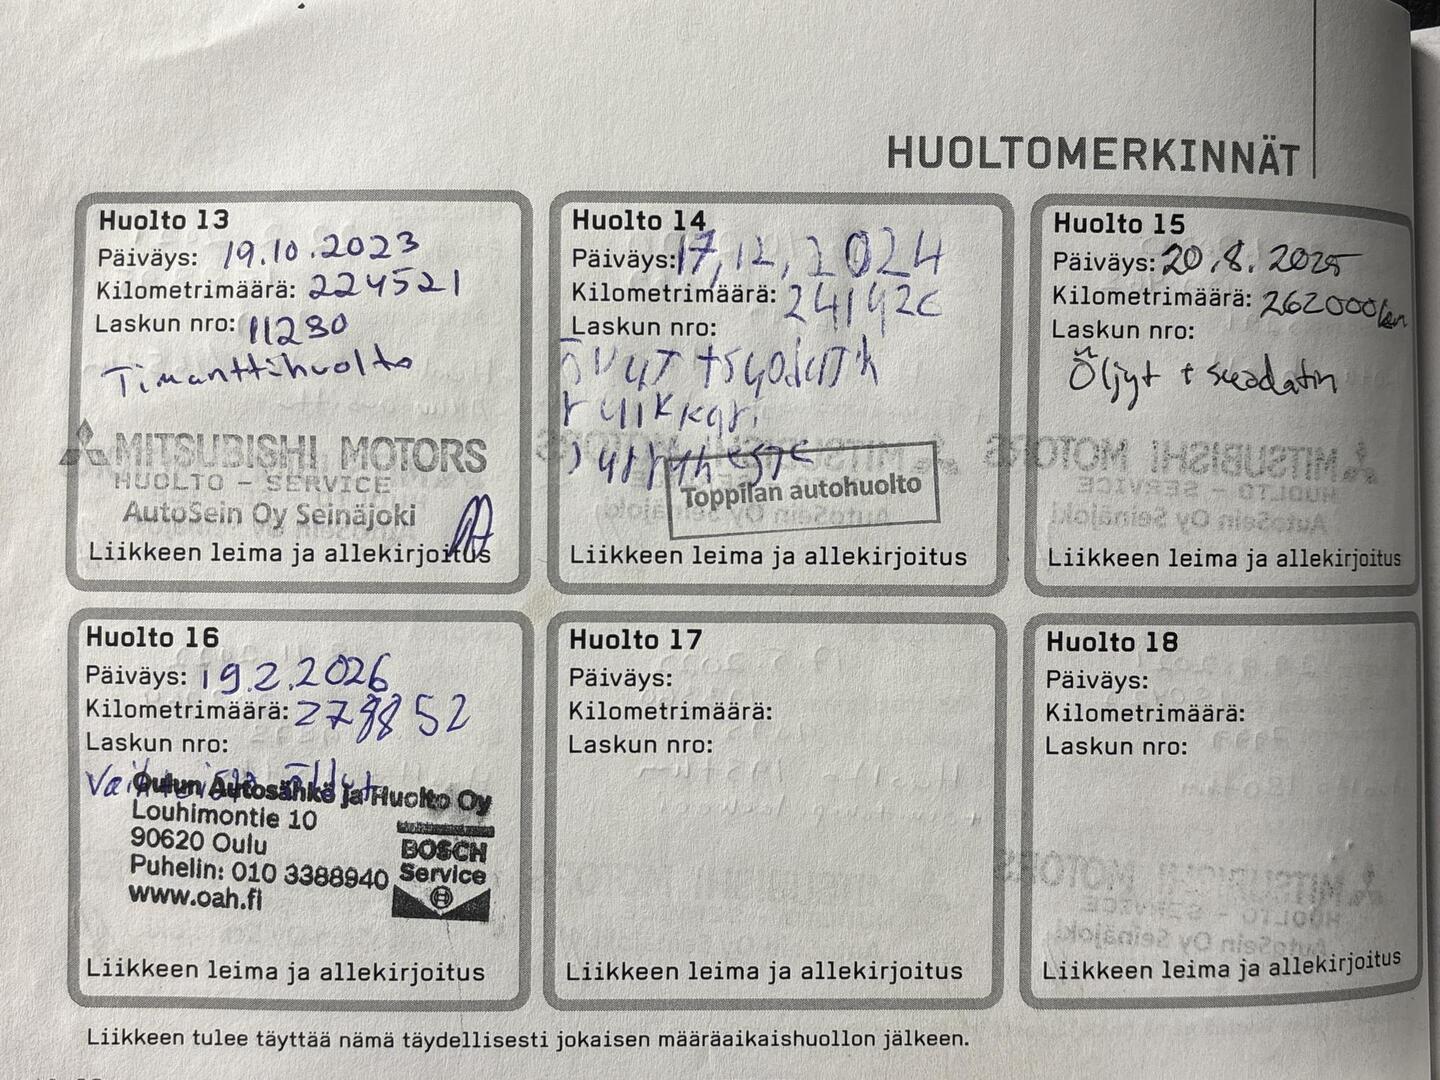 HUOLTOMERKINNÄT
Huolto 13
Päiväys: 19.10.2023
Kilometrimäärä: 224521
Laskun nro: 11280
Timanttihuolto
MITSUBISHI MOTORS
HUOLTO - SERVICE
AutoSein Oy Seinäjoki
Liikkeen leima ja allekirjoitus
Huolto 14
Päiväys: 17,12,2024
Kilometrimäärä:
Laskun nro:
Toppilan autohuolto
Liikkeen leima ja allekirjoitus
Huolto 15
Päiväys: 20.8.2025
Kilometrimäärä: 262000km
Laskun nro:
Öljyt + suodatin
Liikkeen leima ja allekirjoitus
Huolto 16
Päiväys: 19.2.2026
Kilometrimäärä:
Laskun nro:
Oulun Autosähkö ja Huolto Oy
Louhimontie 10
90620 Oulu
Puhelin: 010 3388940
www.oah.fi
BOSCH
Service
Liikkeen leima ja allekirjoitus
Huolto 17
Päiväys:
Kilometrimäärä:
Laskun nro:
Liikkeen leima ja allekirjoitus
Huolto 18
Päiväys:
Kilometrimäärä:
Laskun nro:
Liikkeen leima ja allekirjoitus
Liikkeen tulee täyttää nämä täydellisesti jokaisen määräaikaishuollon jälkeen.